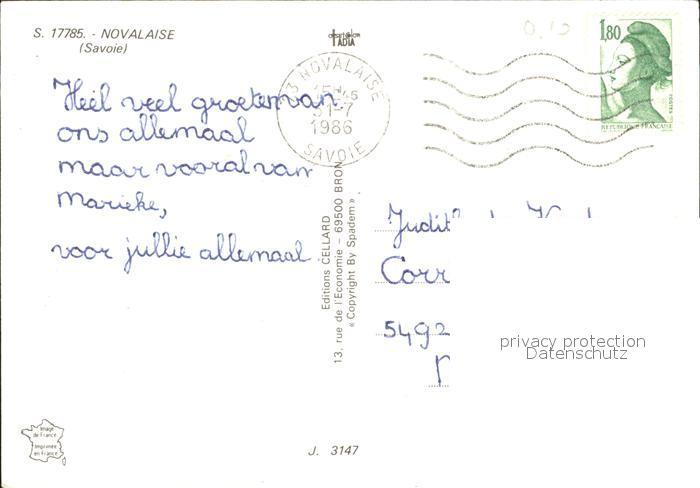 S. 17785. - NOVALAISE
(Savoie)
Heel veel groeten van
ons allemaal
maar vooral van
Marieke,
voor jullie allemaal
73 NOVALAISE
15H45
31-7
1986
SAVOIE
1,80
POSTES
REPUBLIQUE FRANÇAISE
Editions CELLARD
13, rue de l'Economie - 69500 BRON
« Copyright By Spadem »
Judit
Corr
5492
privacy protection
Datenschutz
Image
de France
Imprimée
en France
J. 3147